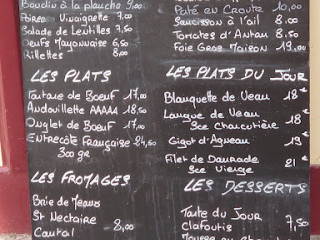 Boudin à la plancha 7,00
Poireau Vinaigrette 7,00
Salade de Lentilles 7,50
Oeufs Mayonnaise 6,50
Rillettes 8,00
LES PLATS
Tartare de Boeuf 17,00
Andouillette AAAAA 18,50
Onglet de Boeuf 17,00
Entrecôte Française 24,50
300 gr
LES FROMAGES
Brie de Meaux
St Nectaire
Cantal 8,00
Pâté en Croute 10,00
Saucisson à l'ail 8,00
Tomates d'Antan 8,50
Foie Gras Maison 19,00
LES PLATS DU JOUR
Blanquette de Veau 18€
Langue de Veau 18€
Sce Charcutière
Gigot d'Agneau 19€
Filet de Daurade 21€
Sce Vierge
LES DESSERTS
Tarte du Jour
Clafoutis 7,50